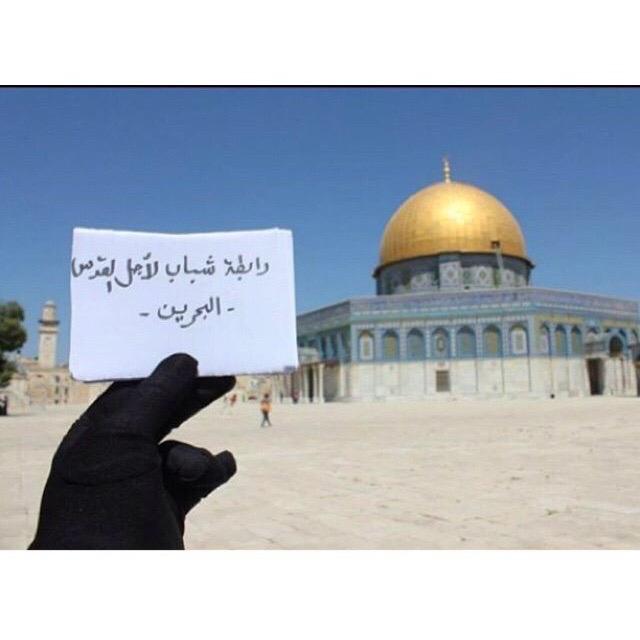 رابطة شباب لأجل القدس
- البحرين -